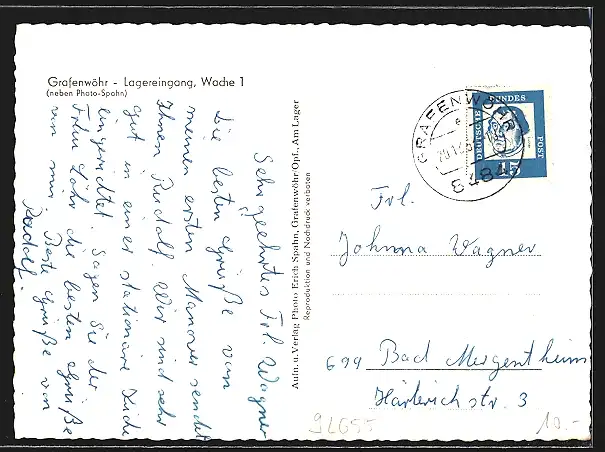 Grafenwöhr - Lagereingang, Wache 1
(neben Photo-Spahn)
Sehr geehrtes Frl. Wagner
Die besten Grüße vom
meinen ersten Manöver sendet
Ihnen Rudolf. Wir sind sehr
gut in einer stationäre
eingerichtet. Sagen Sie der
Frau Löhr die besten Grüße
von mir. Beste Grüße von
Rudolf.
Aufn. u. Verlag Photo Erich Spahn, Grafenwöhr/Opf., Am Lager
Reproduktion und Nachdruck verboten
GRAFENWÖHR
e
8484
DEUTSCHE BUNDES POST
15
Frl.
Johnna Wagner
699 Bad Mergentheim
Härterichstr. 3
92655
10.-